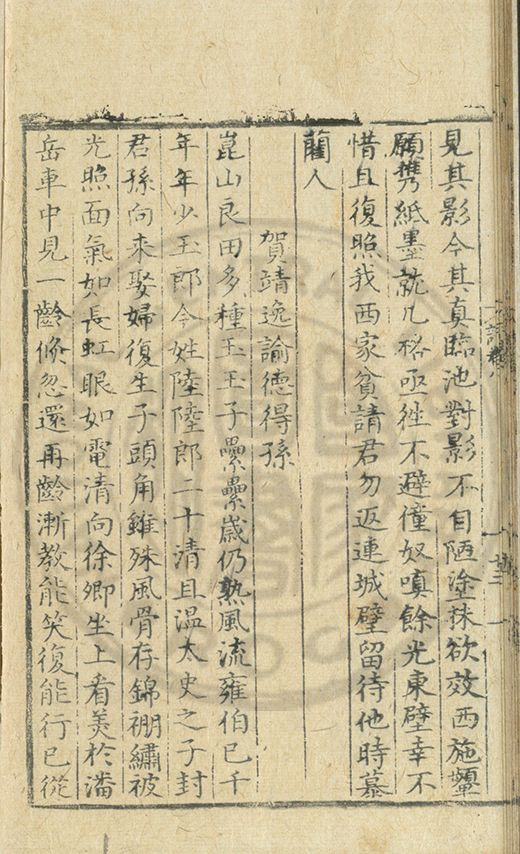 見其影今其真臨池對影不自陋塗抹欲效西施顰
願携紙墨就几格亟往不避僮奴嗔餘光東壁幸不
惜且復照我西家貧請君勿返連城璧留待他時慕
藺人
賀靖逸諭德得孫
崑山良田多種玉玉子纍纍歲仍熟風流雍伯已千
年年少玉郎今姓陸陸郎二十清且溫太史之子封
君孫向來娶婦復生子頭角雖殊風骨存錦襴繡被
光照面氣如長虹眼如電清向徐卿坐上看美於潘
岳車中見一齡倏忽還再齡漸教能笑復能行已從